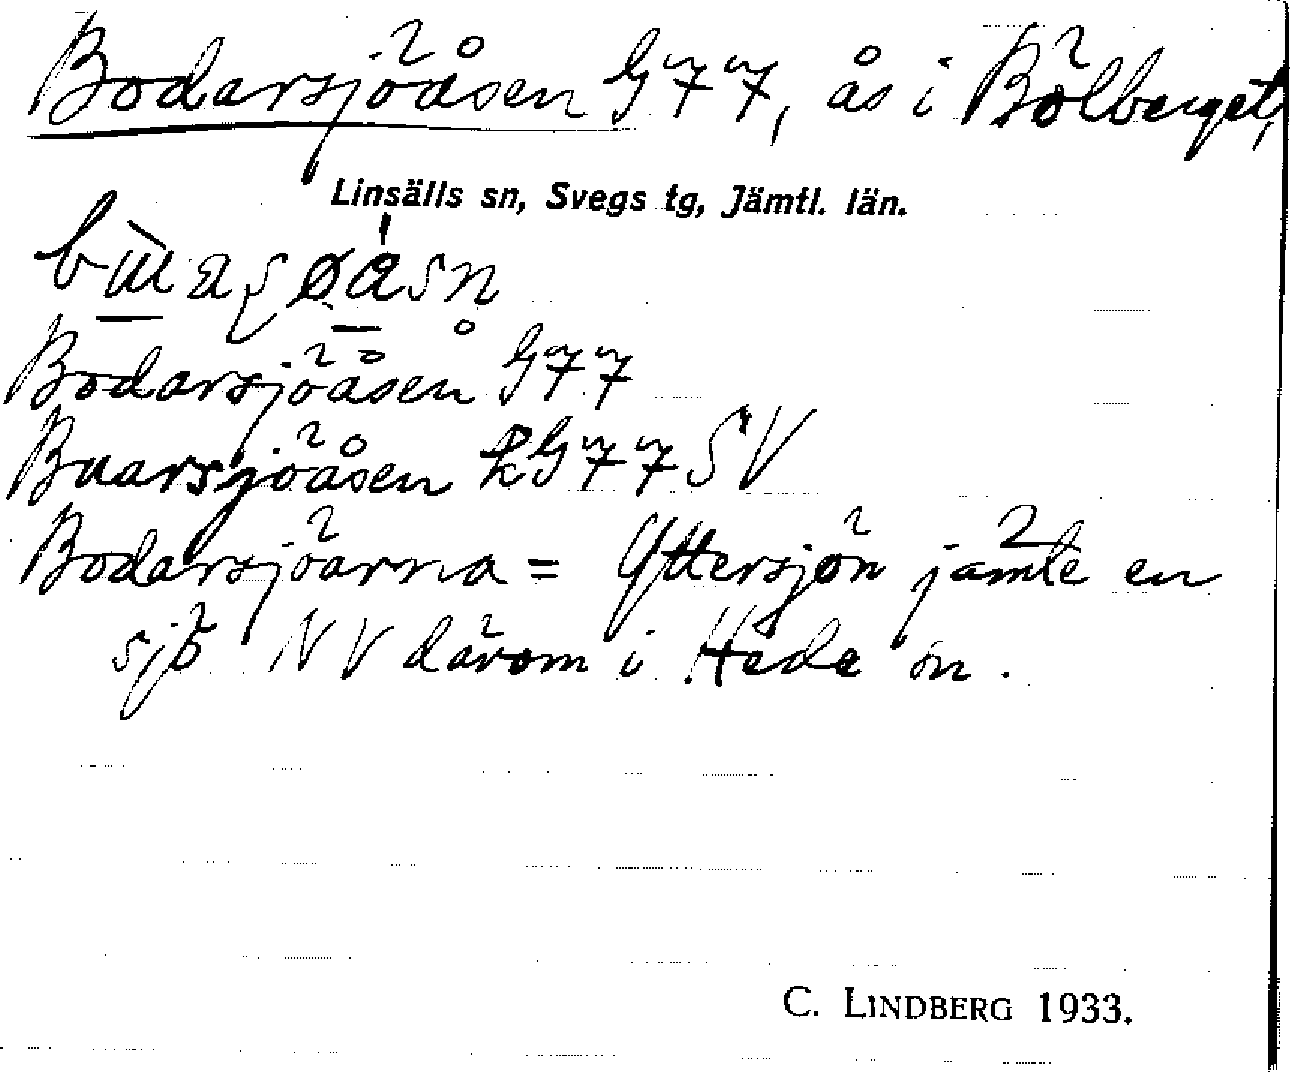 Bodarsjöåsen G77, ås i Bölberget,
Linsälls sn, Svegs tg, Jämtl. län.
Bodarsjöåsen G77
Buarsjöåsen kG77SV
Bodarsjöarna = Yttersjön jämte en
sjö NV därom i Hede sn.
C. LINDBERG 1933.